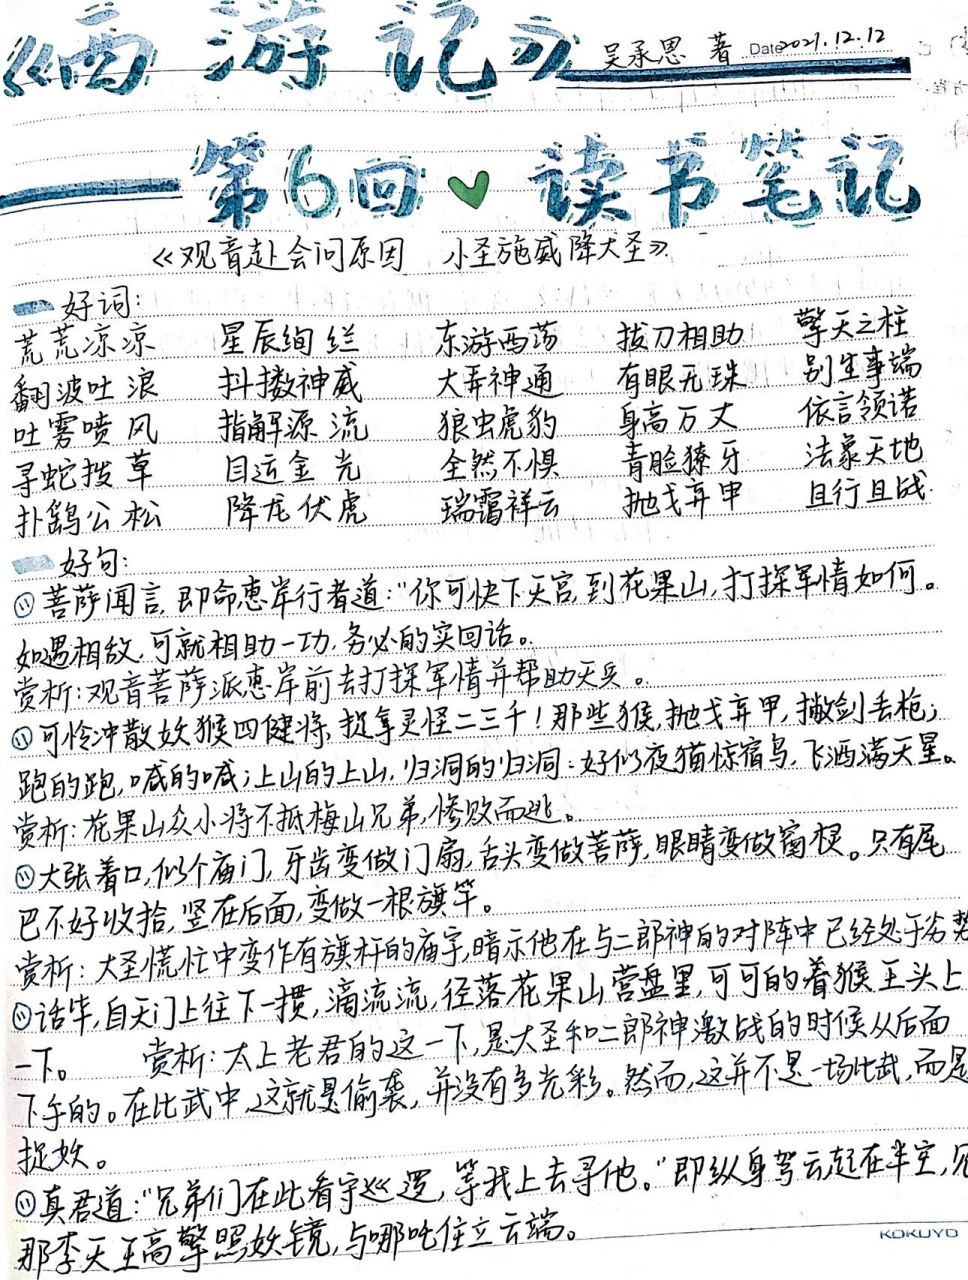 《西游记》 吴承恩 著 Date 2021.12.12
第6回 读书笔记
《观音赴会问原因 小圣施威降大圣》
好词：
荒荒凉凉 星辰绚烂 东游西荡 拔刀相助 擎天之柱
翻波吐浪 抖擞神威 大弄神通 有眼无珠 别生事端
吐雾喷风 指解源流 狼虫虎豹 身高万丈 依言领诺
寻蛇拨草 目运金光 全然不惧 青脸獠牙 法象天地
扑鹞公松 降龙伏虎 瑞霭祥云 抛戈弃甲 且行且战
好句：
菩萨闻言，即命惠岸行者道：“你可快下天宫，到花果山，打探军情如何。
如遇相敌，可就相助一功，务必的实回话。
赏析：观音菩萨派惠岸前去打探军情并帮助天兵。
可怜冲散妖猴四健将，捉拿灵怪二三千！那些猴，抛戈弃甲，撇剑丢枪；
跑的跑，喊的喊；上山的上山，归洞的归洞：好似夜猫惊宿鸟，飞洒满天星。
赏析：花果山众小将不抵梅山兄弟，惨败而逃。
大张着口，似个庙门，牙齿变做门扇，舌头变做菩萨，眼睛变做窗棂。只有尾
巴不好收拾，竖在后面，变做一根旗竿。
赏析：大圣慌忙中变作有旗杆的庙宇，暗示他在与二郎神的对阵中已经处于劣势
话毕，自天门上往下一掼，滴流流，径落花果山营盘里，可可的着猴王头上
一下。 赏析：太上老君的这一下，是大圣和二郎神激战的时候从后面
下手的。在比武中，这就是偷袭，并没有多光彩。然而，这并不是一场比武，而是
捉妖。
真君道：“兄弟们在此看守巡逻，等我上去寻他。”即纵身驾云起在半空，见
那李天王高擎照妖镜，与哪吒住立云端。
KOKUYO